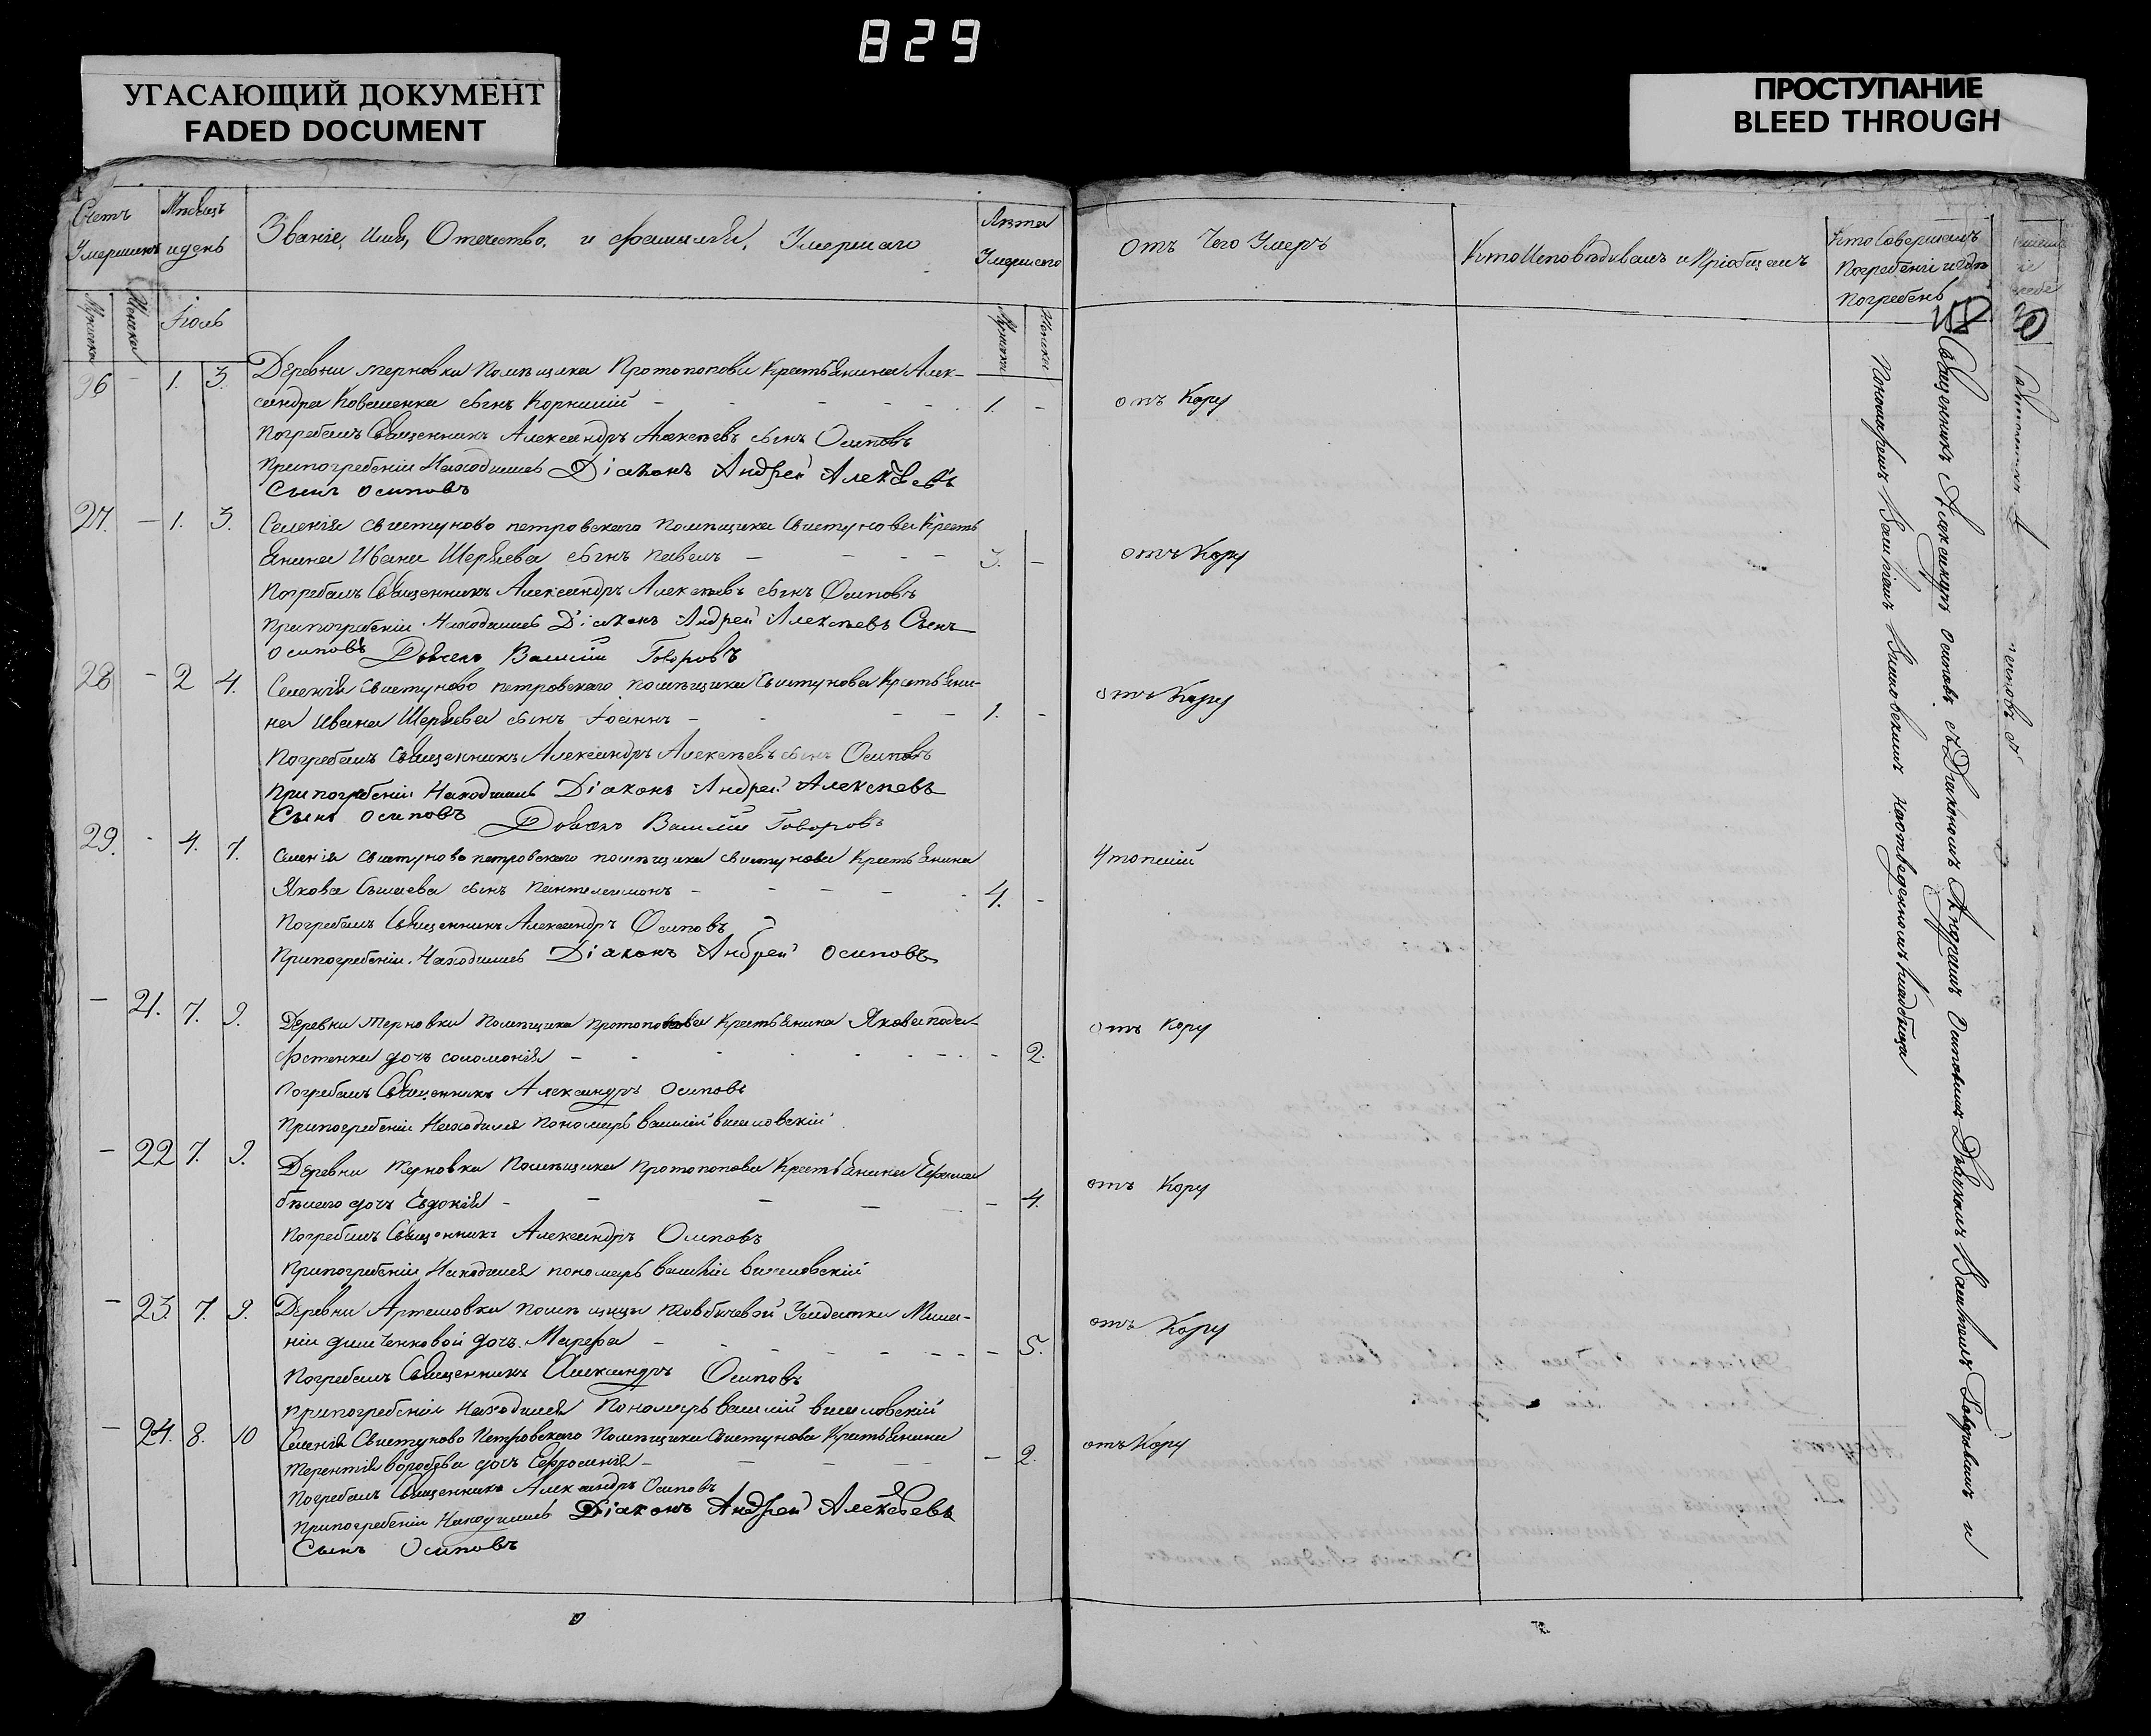 829
УГАСАЮЩИЙ ДОКУМЕНТ
FADED DOCUMENT
ПРОСТУПАНИЕ
BLEED THROUGH
Счетъ
Умершихъ
Мѣсяцъ
и день
Званіе, имя, Отечество, и фамилия, Умершаго
Лѣта
Умершаго
Мужска
Женска
Іюль
Мужски
Женски
26 - 1. 3. Деревни терновки Помѣщика Протопопова Крестьянина Алек-
сандра Коваленка сынъ Корнилій - - - - 1. -
Погребалъ Священникъ Александръ Алексѣевъ сынъ Осиповъ
При погребеніи Находились Діаконъ Андрей Алексѣевъ
Сынъ осиповъ
27. - 1. 3. Селенія свистуново петровскаго помѣщика Свистунова Кресть
янина Ивана Шеряева сынъ павелъ - - - - 3. -
Погребалъ Священникъ Александръ Алексѣевъ сынъ Осиповъ
при погребеніи Находились Діаконъ Андрей Алексѣевъ Сынъ
осиповъ Дьячекъ Василій Говоровъ
28 - 2 4. Селенія свистуново петровскаго помѣщика Свистунова Крестьяни-
на ивана Шеряева сынъ Іоаннъ - - - - 1. -
Погребалъ Священникъ Александръ Алексѣевъ сынъ Осиповъ
При погребеніи Находились Діаконъ Андрей Алексѣевъ
Сынъ осиповъ Дьячекъ Василій Говоровъ
29. - 4. 7. Селенія свистуново петровскаго помѣщика свистунова Крестьянина
Якова сынъ Пантелеимонъ - - - - 4. -
Погребалъ Священникъ Александръ Осиповъ
При погребеніи Находились Діаконъ Андрей осиповъ
- 21. 7. 9. Деревни терновки Помѣщика протопопова Крестьянина Якова
дочь соломонія - - - - 2.
Погребалъ Священникъ Александръ осиповъ
При погребеніи Находился пономарь василій висиловскій
- 22 7. 9. Деревни терновки Помѣщика протопопова Крестьянина
дочь Евдокія - - - - 4.
Погребалъ Священникъ Александръ Осиповъ
При погребеніи Находился пономарь василій висиловскій
- 23. 7. 9. Деревни Артемовки помѣщицы
дочь Марфа - - - - 5.
Погребалъ Священникъ Александръ Осиповъ
При погребеніи Находился Пономарь василій висиловскій
- 24. 8. 10 Селенія Свистуново Петровскаго Помѣщика Свистунова Крестьянина
терентія воробьва дочь Ефросинія - - - - 2.
Погребалъ Священникъ Александръ Осиповъ
При погребеніи Находились Діаконъ Андрей Алексѣевъ
Сынъ Осиповъ
отъ Чего Умеръ
Кто Исповѣдывалъ и Пріобщалъ
Кто Совершалъ
Погребеніе и гдѣ
Погребенъ
отъ Кору
отъ Кору
отъ Кору
Утопшій
отъ Кору
отъ Кору
отъ Кору
отъ Кору
Священникъ Александръ осиповъ съ Діакономъ Андреемъ осиповымъ Дьячкомъ Василіемъ Говоровымъ и
Пономаремъ Василіемъ Висиловскимъ на отведенномъ кладбищѣ